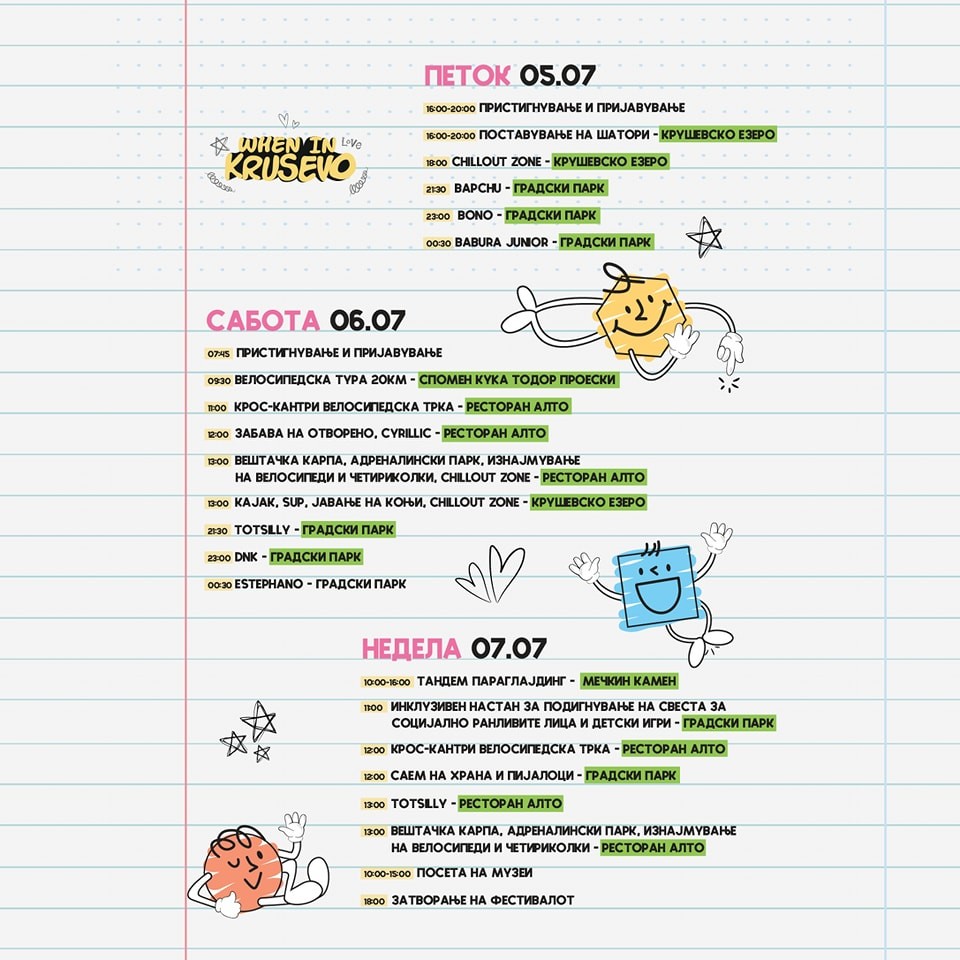 ПЕТОК 05.07
16:00-20:00 ПРИСТИГНУВАЊЕ И ПРИЈАВУВАЊЕ
16:00-20:00 ПОСТАВУВАЊЕ НА ШАТОРИ - КРУШЕВСКО ЕЗЕРО
18:00 CHILLOUT ZONE - КРУШЕВСКО ЕЗЕРО
21:30 BAPCHU - ГРАДСКИ ПАРК
23:00 BONO - ГРАДСКИ ПАРК
00:30 BABURA JUNIOR - ГРАДСКИ ПАРК
WHEN IN LOVE
KRUSEVO
САБОТА 06.07
07:45 ПРИСТИГНУВАЊЕ И ПРИЈАВУВАЊЕ
09:30 ВЕЛОСИПЕДСКА ТУРА 20КМ - СПОМЕН КУКА ТОДОР ПРОЕСКИ
11:00 КРОС-КАНТРИ ВЕЛОСИПЕДСКА ТРКА - РЕСТОРАН АЛТО
12:00 ЗАБАВА НА ОТВОРЕНО, CYRILLIC - РЕСТОРАН АЛТО
13:00 ВЕШТАЧКА КАРПА, АДРЕНАЛИНСКИ ПАРК, ИЗНАЈМУВАЊЕ
НА ВЕЛОСИПЕДИ И ЧЕТИРИКОЛКИ, CHILLOUT ZONE - РЕСТОРАН АЛТО
13:00 КАЈАК, SUP, ЈАВАЊЕ НА КОЊИ, CHILLOUT ZONE - КРУШЕВСКО ЕЗЕРО
21:30 TOTSILLY - ГРАДСКИ ПАРК
23:00 DNK - ГРАДСКИ ПАРК
00:30 ESTEPHANO - ГРАДСКИ ПАРК
НЕДЕЛА 07.07
10:00-16:00 ТАНДЕМ ПАРАГЛАЈДИНГ - МЕЧКИН КАМЕН
11:00 ИНКЛУЗИВЕН НАСТАН ЗА ПОДИГНУВАЊЕ НА СВЕСТА ЗА
СОЦИЈАЛНО РАНЛИВИТЕ ЛИЦА И ДЕТСКИ ИГРИ - ГРАДСКИ ПАРК
12:00 КРОС-КАНТРИ ВЕЛОСИПЕДСКА ТРКА - РЕСТОРАН АЛТО
12:00 САЕМ НА ХРАНА И ПИЈАЛОЦИ - ГРАДСКИ ПАРК
13:00 TOTSILLY - РЕСТОРАН АЛТО
13:00 ВЕШТАЧКА КАРПА, АДРЕНАЛИНСКИ ПАРК, ИЗНАЈМУВАЊЕ
НА ВЕЛОСИПЕДИ И ЧЕТИРИКОЛКИ - РЕСТОРАН АЛТО
10:00-15:00 ПОСЕТА НА МУЗЕИ
18:00 ЗАТВОРАЊЕ НА ФЕСТИВАЛОТ